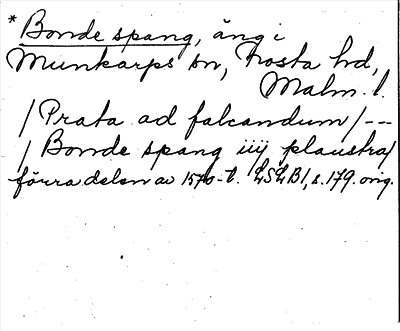 * Bonde spang, äng i
Munkarps sn, Frosta hd,
Malm. l.
/Prata ad falcandum/---
/Bonde spang iiij plaustra/
förra delen av 1570-t. LSLB1, s. 179. orig.